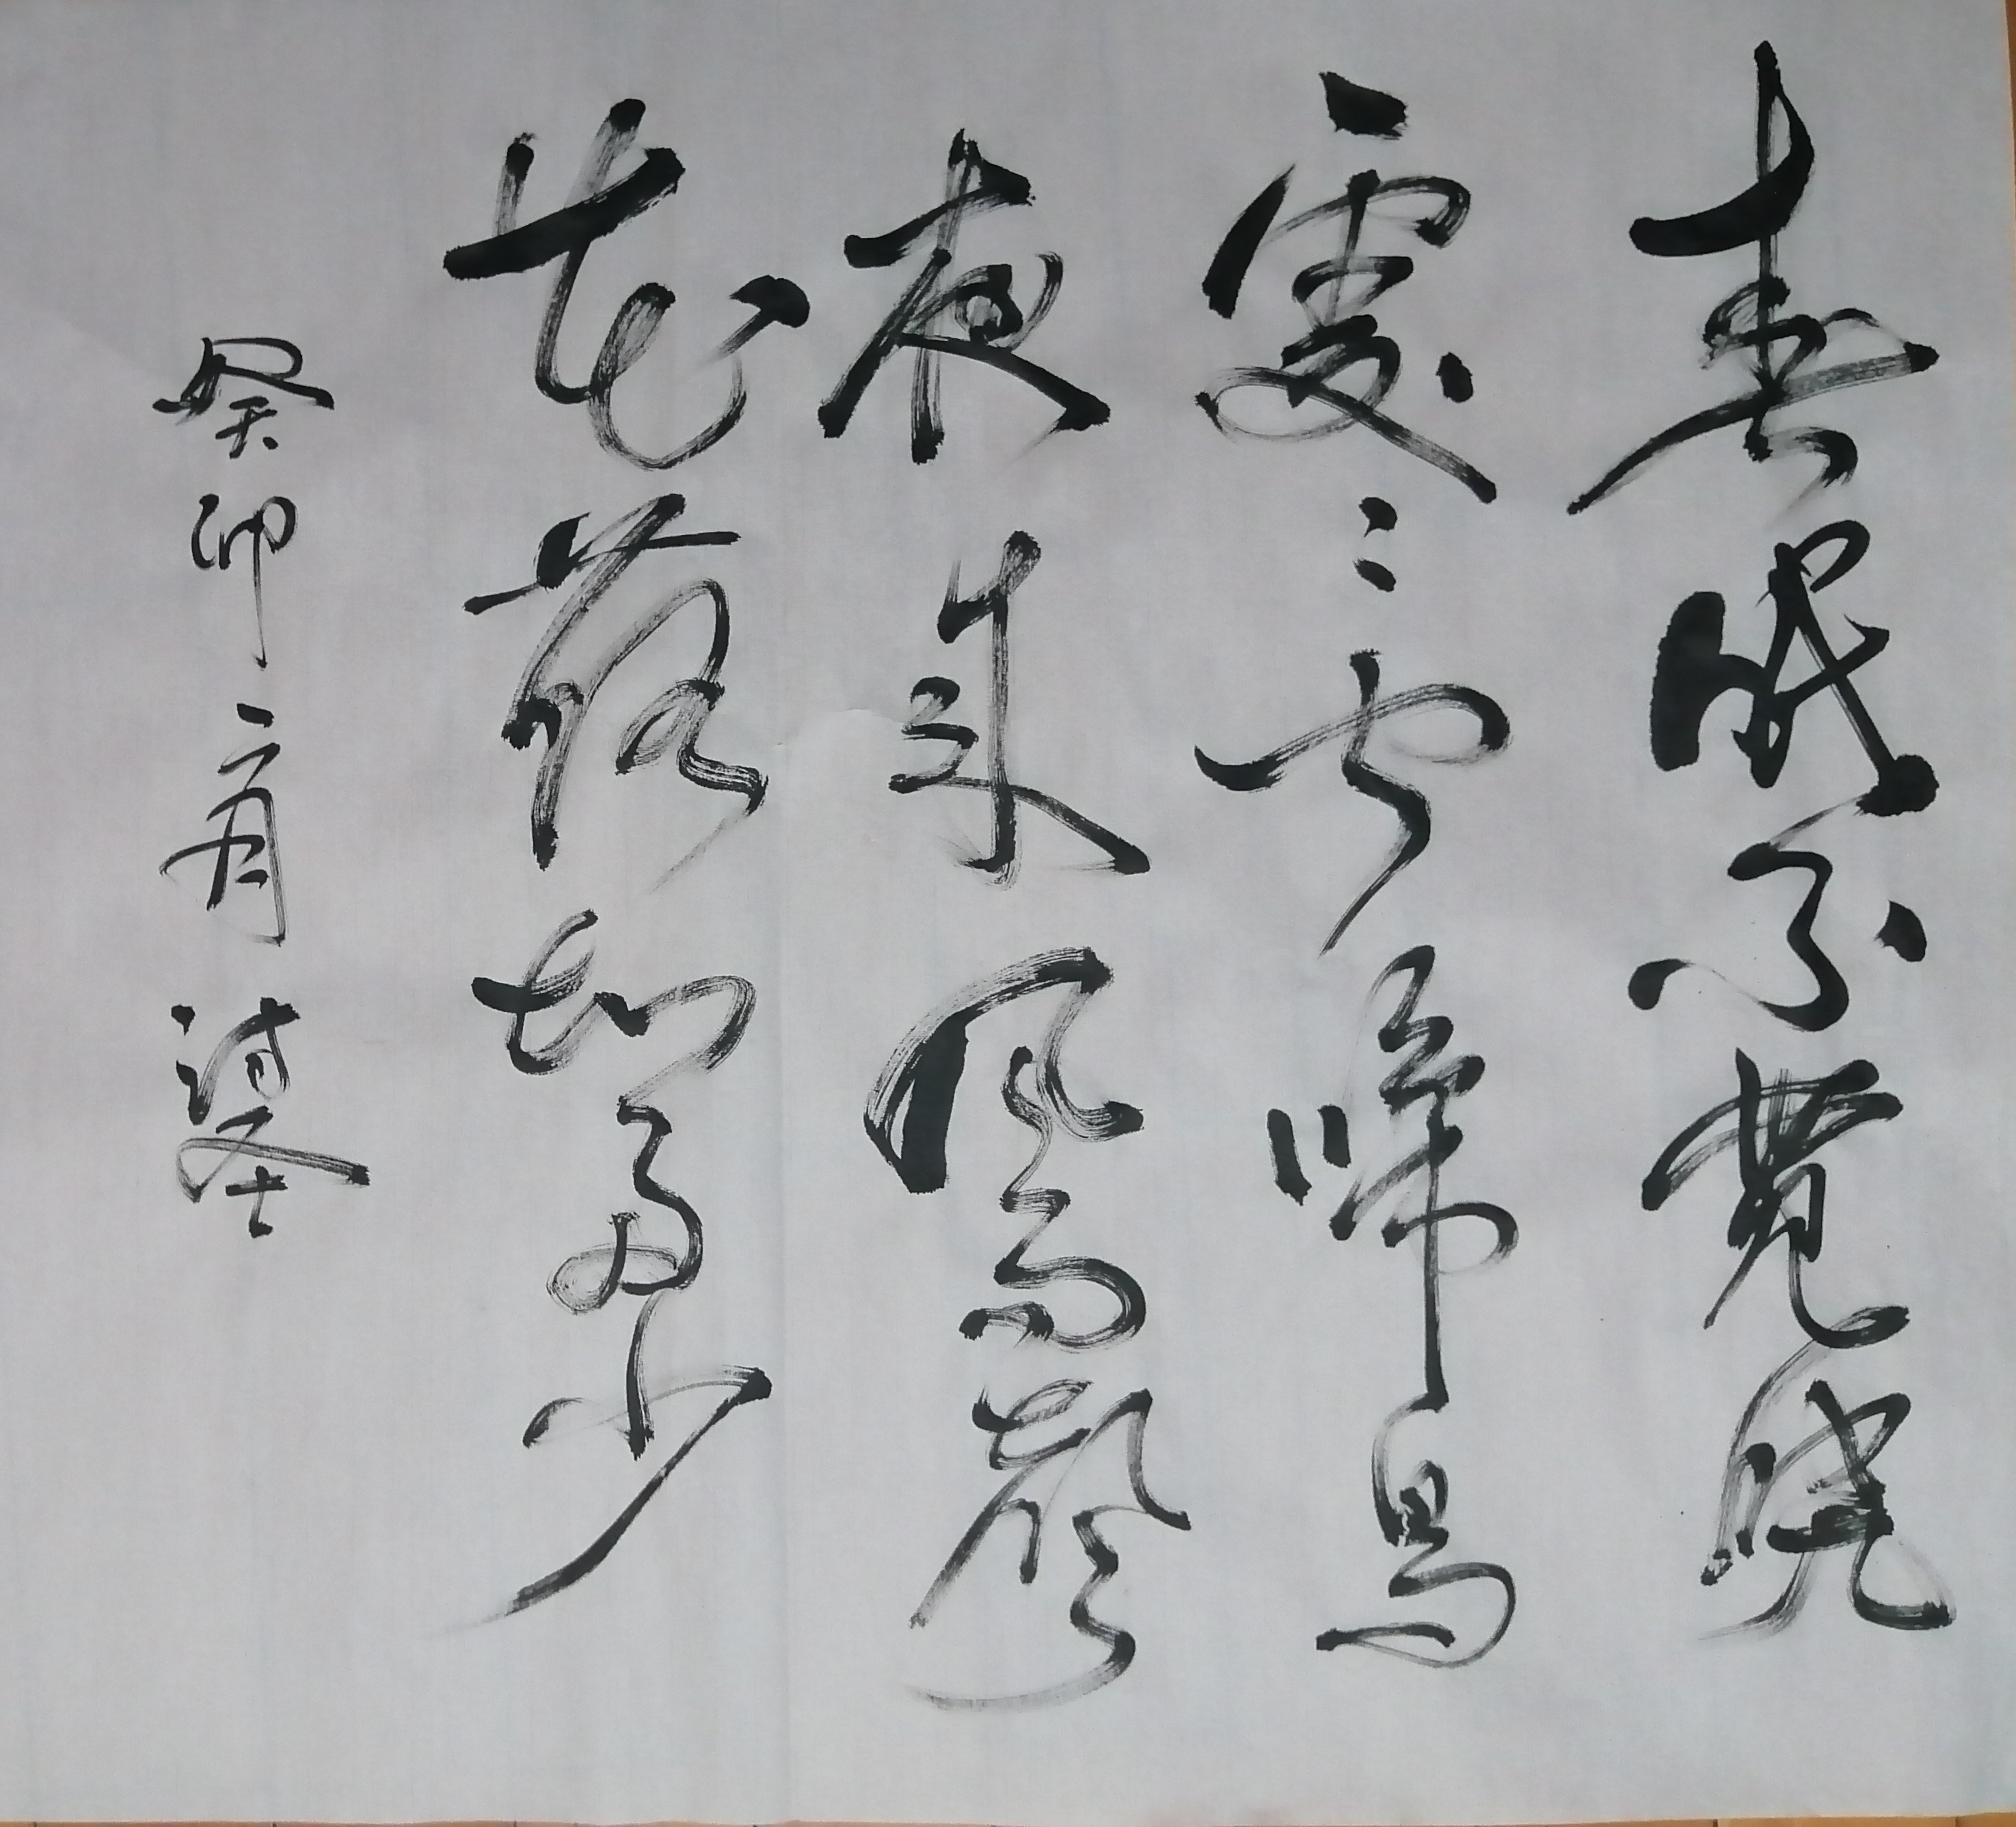 春眠不覺曉
處々聞啼鳥
夜来風雨聲
花落知多少
癸卯二月 诗圣